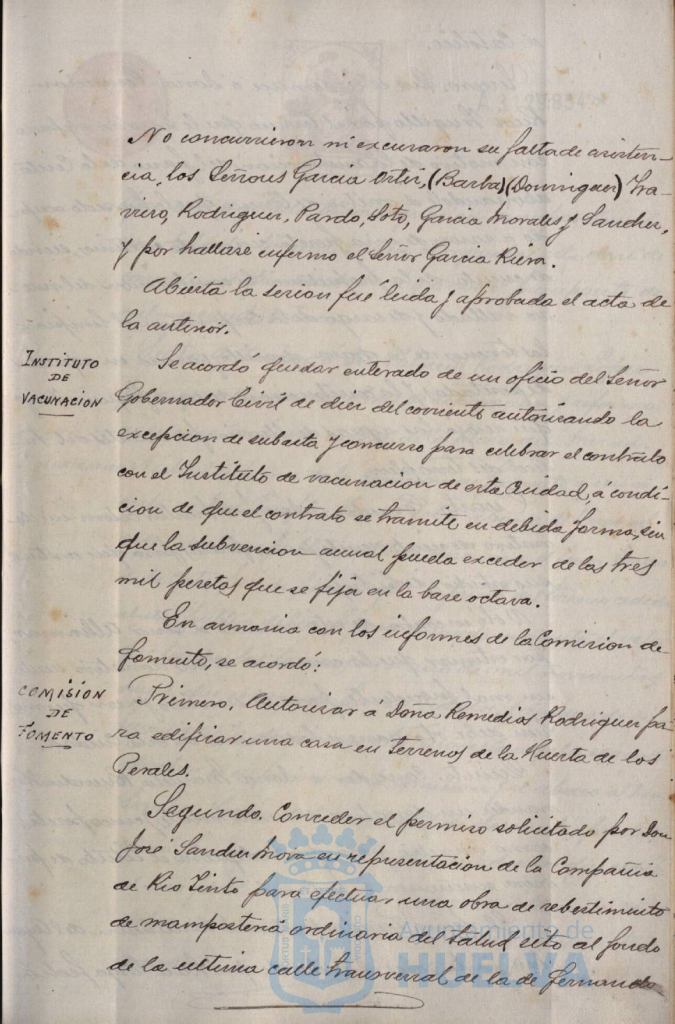 No concurrieron ni excusaron su falta de asisten-
cia, los Señores Garcia Ortiz, (Barba) (Dominguez) Tra-
viero, Rodriguez, Pardo, Soto, Garcia Morales y Sanchez,
y por hallarse enfermo el Señor Garcia Riera.
Abierta la sesion fué leida y aprobada el acta de
la anterior.
INSTITUTO
DE
VACUNACION
Se acordó quedar enterado de un oficio del Señor
Gobernador Civil de diez del corriente autorizando la
excepcion de subasta y concurso para celebrar el contrato
con el Instituto de vacunacion de esta Ciudad, á condi-
cion de que el contrato se tramite en debida forma, sin
que la subvencion anual pueda exceder de las tres
mil pesetas que se fija en la base octava.
En armonia con los informes de la Comision de
fomento, se acordó:
COMISION
DE
FOMENTO
Primero. Autorizar á Doña Remedios Rodriguez pa-
ra edificar una casa en terrenos de la Huerta de los
Perales.
Segundo. Conceder el permiso solicitado por Don
José Sanchez Mora en representacion de la Compañia
de Rio Tinto para efectuar una obra de rebestimiento
de mamposteria ordinaria del talud sito al fondo
de la ultima calle transversal de la de fernando
Ayuntamiento de
HUELVA